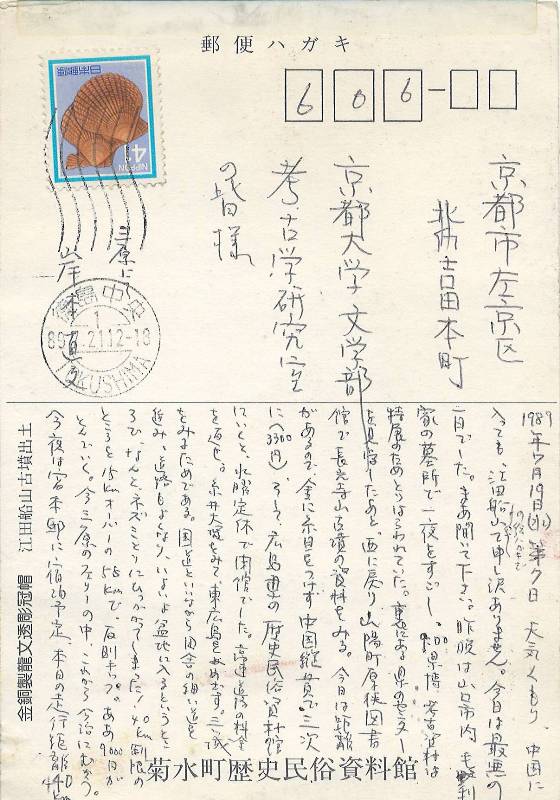 郵便ハガキ
606-
日本郵便
41
NIPPON
京都市左京区
北白川吉田本町
京都大学文学部
考古学研究室
の皆様
三原にて
岸本直文
徳島中央
89 21 12-18
TOKUSHIMA
1989年7月19日(水) 第7日 天気くもり、中国に
入っても、江田船山で申し訳ありません。今日は最悪の
一日でした。まあ聞いて下さい。昨晩は山口市内、毛利
家の墓所で一夜をすごし、県博、考古資料は
特展のためとりはらわれていた。
を見学したあと、西に戻り山陽町厚狭図書
館で長光寺山古墳の資料をみる。今日は距離
があるので、金に糸目をつけず中国縦貫で三次
に(3300円)、そして、広島県の歴史民俗資料館
にいくと、水曜定休で閉館でした。高速道路の料金
を返せ。糸井大塚をみて東広島をめざす。三ツ城
をみるためである。国道といいながら田舎の細い道を
進み、道路もよくなり、いよいよ盆地に入るというとこ
ろで、なんとネズミとりにひっかかってしまった!40km制限の
ところを15kmオーバーの55kmで、反則キップ。ああ9000円が
とんでいく。今三原のフェリーの中、これから今治にむかう。
今夜は宮本邸に宿泊予定、本日の走行距離
金銅製龍文透彫冠帽 江田船山古墳出土
菊水町歴史民俗資料館